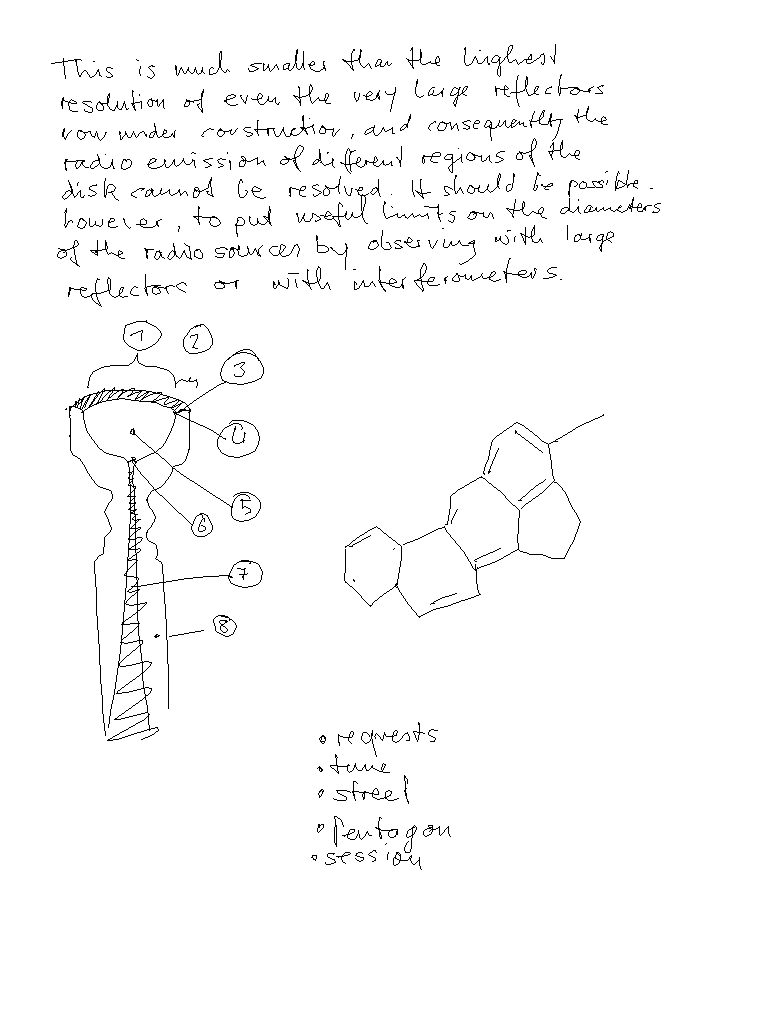 This is much smaller than the highest
resolution of even the very large reflectors
now under construction, and consequently the
radio emission of different regions of the
disk cannot be resolved. It should be possible.
however, to put useful limits on the diameters
of the radio sources by observing with large
reflectors or with interferometers.
1 2
3
4
5
6
7
8
• requests
• tune
• street
• Pentagon
• session